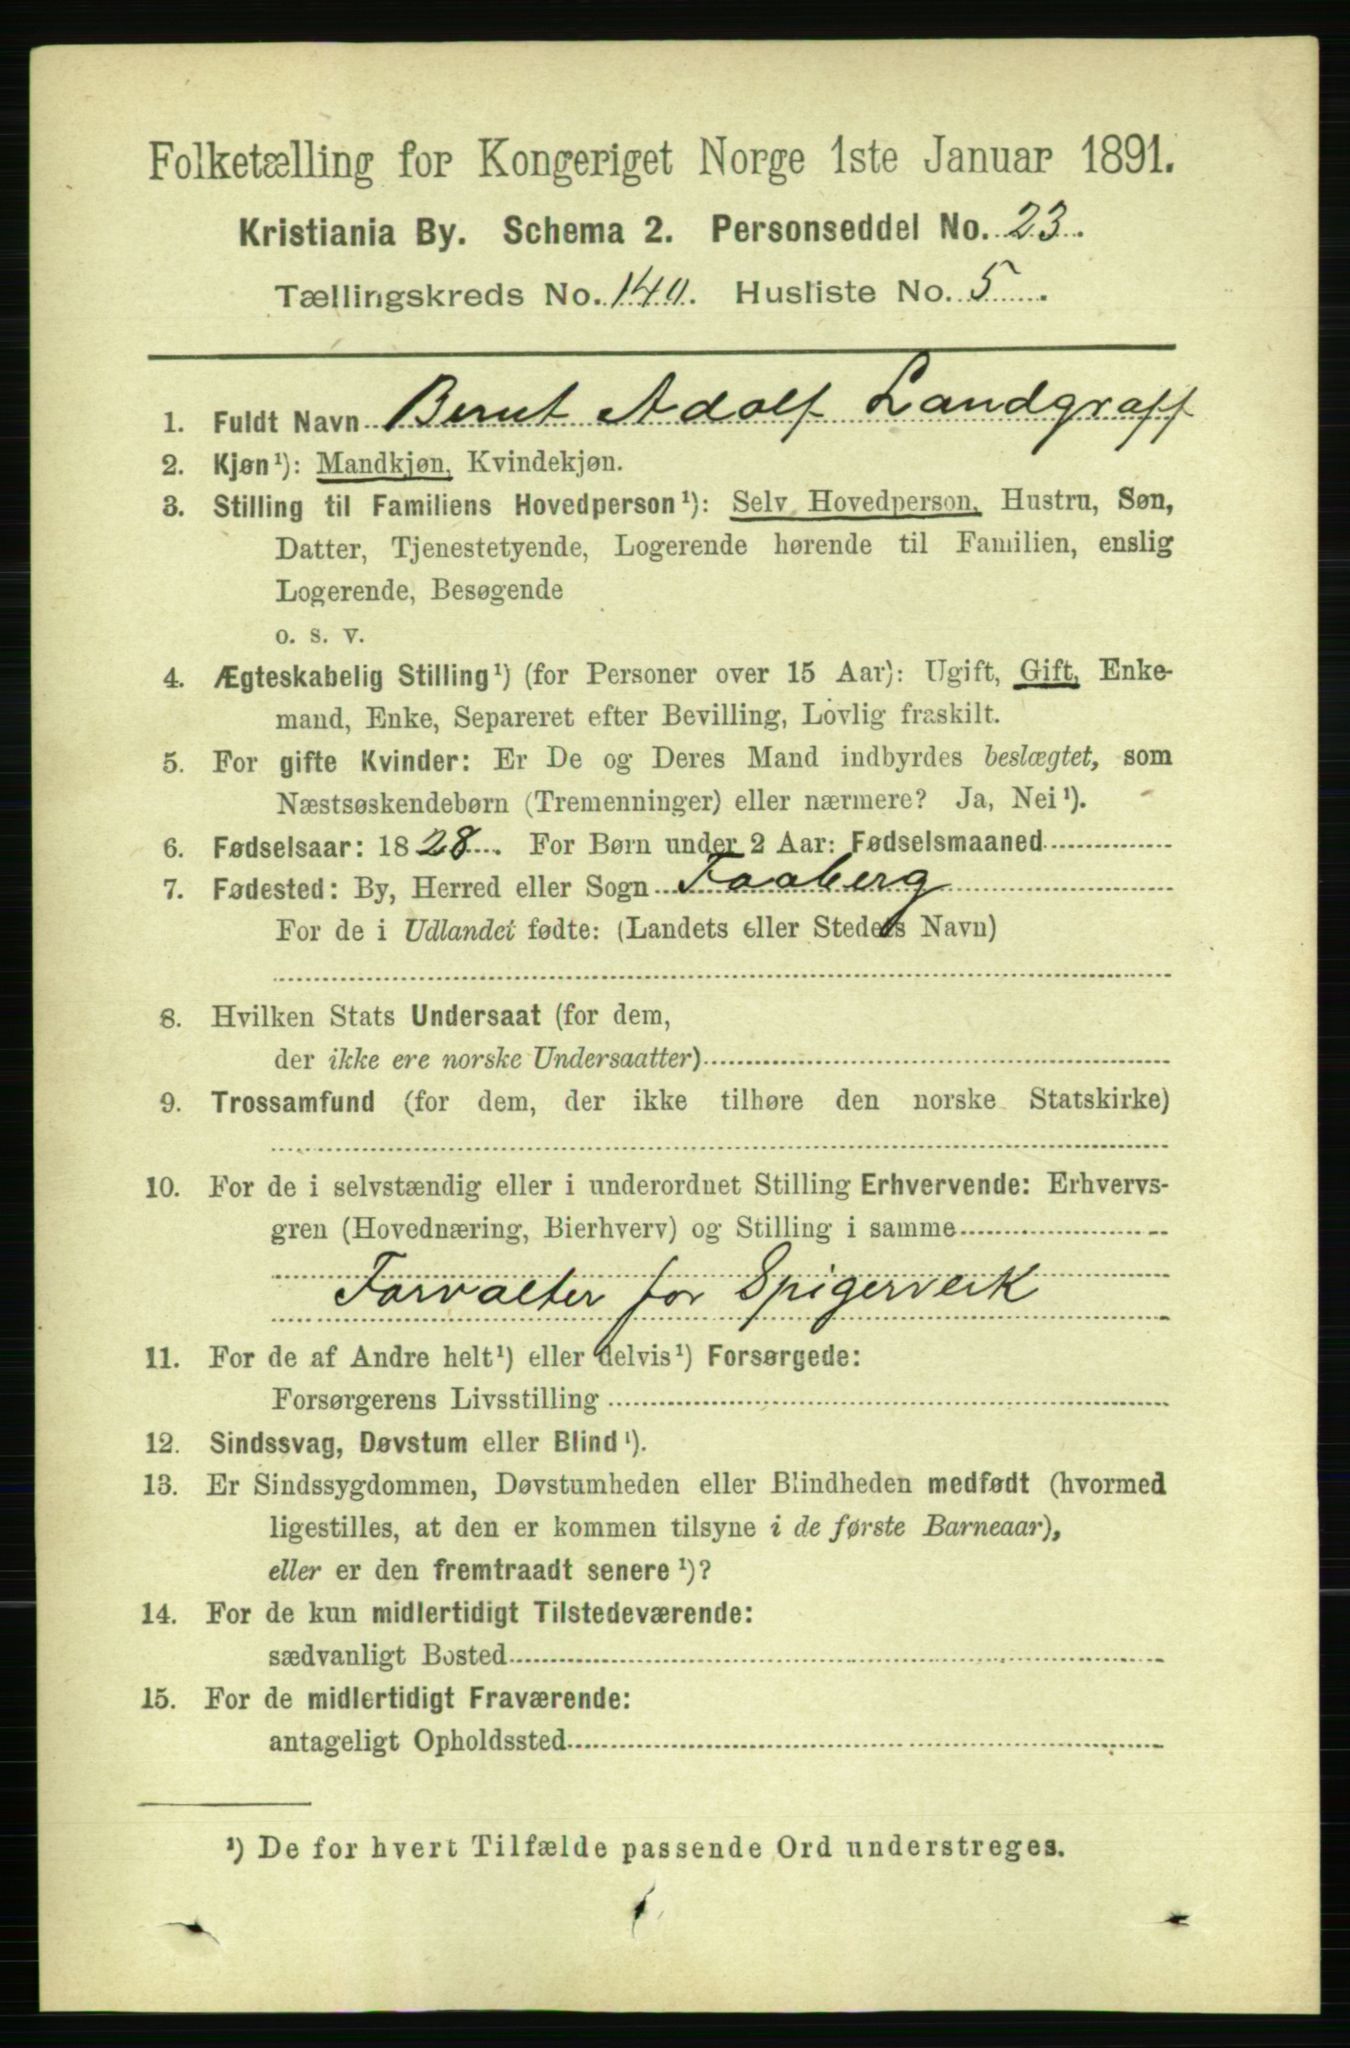 Folketælling for Kongeriget Norge 1ste Januar 1891.
Kristiania By. Schema 2. Personseddel No. 23.
Tællingskreds No. 140. Husliste No. 5.
1. Fuldt Navn Bernt Adolf Landgraff
2. Kjøn¹): Mandkjøn, Kvindekjøn.
3. Stilling til Familiens Hovedperson¹): Selv Hovedperson, Hustru, Søn,
Datter, Tjenestetyende, Logerende hørende til Familien, enslig
Logerende, Besøgende
o. s. v.
4. Ægteskabelig Stilling¹) (for Personer over 15 Aar): Ugift, Gift, Enke-
mand, Enke, Separeret efter Bevilling, Lovlig fraskilt.
5. For gifte Kvinder: Er De og Deres Mand indbyrdes beslægtet, som
Næstsøskendebørn (Tremenninger) eller nærmere? Ja, Nei¹).
6. Fødselsaar: 1828. For Børn under 2 Aar: Fødselsmaaned
7. Fødested: By, Herred eller Sogn Faaberg
For de i Udlandet fødte: (Landets eller Stedets Navn)
8. Hvilken Stats Undersaat (for dem,
der ikke ere norske Undersaatter)
9. Trossamfund (for dem, der ikke tilhøre den norske Statskirke)
10. For de i selvstændig eller i underordnet Stilling Erhvervende: Erhvervs-
gren (Hovednæring, Bierhverv) og Stilling i samme
Forvalter for Spigerverk
11. For de af Andre helt¹) eller delvis¹) Forsørgede:
Forsørgerens Livsstilling
12. Sindssvag, Døvstum eller Blind¹).
13. Er Sindssygdommen, Døvstumheden eller Blindheden medfødt (hvormed
ligestilles, at den er kommen tilsyne i de første Barneaar),
eller er den fremtraadt senere¹)?
14. For de kun midlertidigt Tilstedeværende:
sædvanligt Bosted
15. For de midlertidigt Fraværende:
antageligt Opholdssted
¹) De for hvert Tilfælde passende Ord understreges.